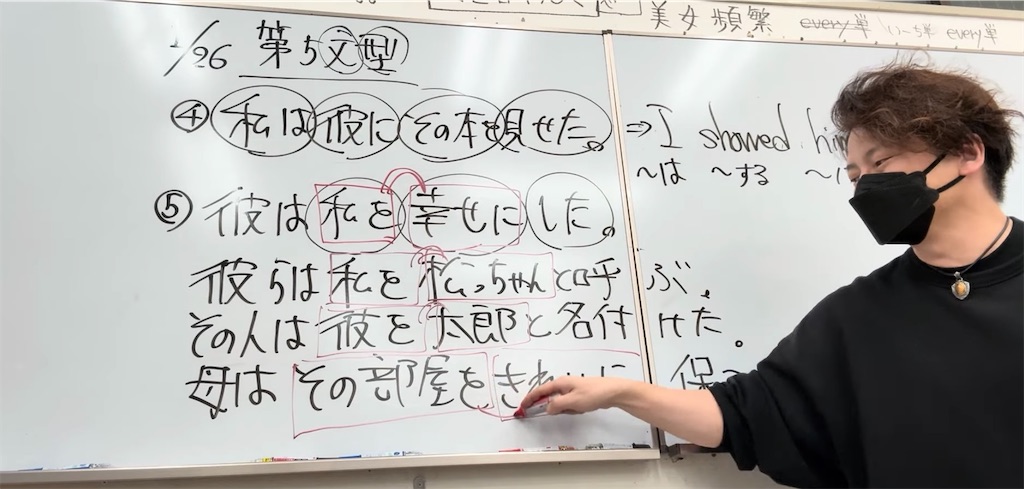 美女頻繁 every単 い~ち単 every単
1/26 第5文型
④ 私は彼にその本を見せた。⇒ I showed him
~は ~する
⑤ 彼は私を幸せにした。
彼らは私を松っちゃんと呼ぶ。
その人は彼を太郎と名付けた。
母はその部屋をきれいに保